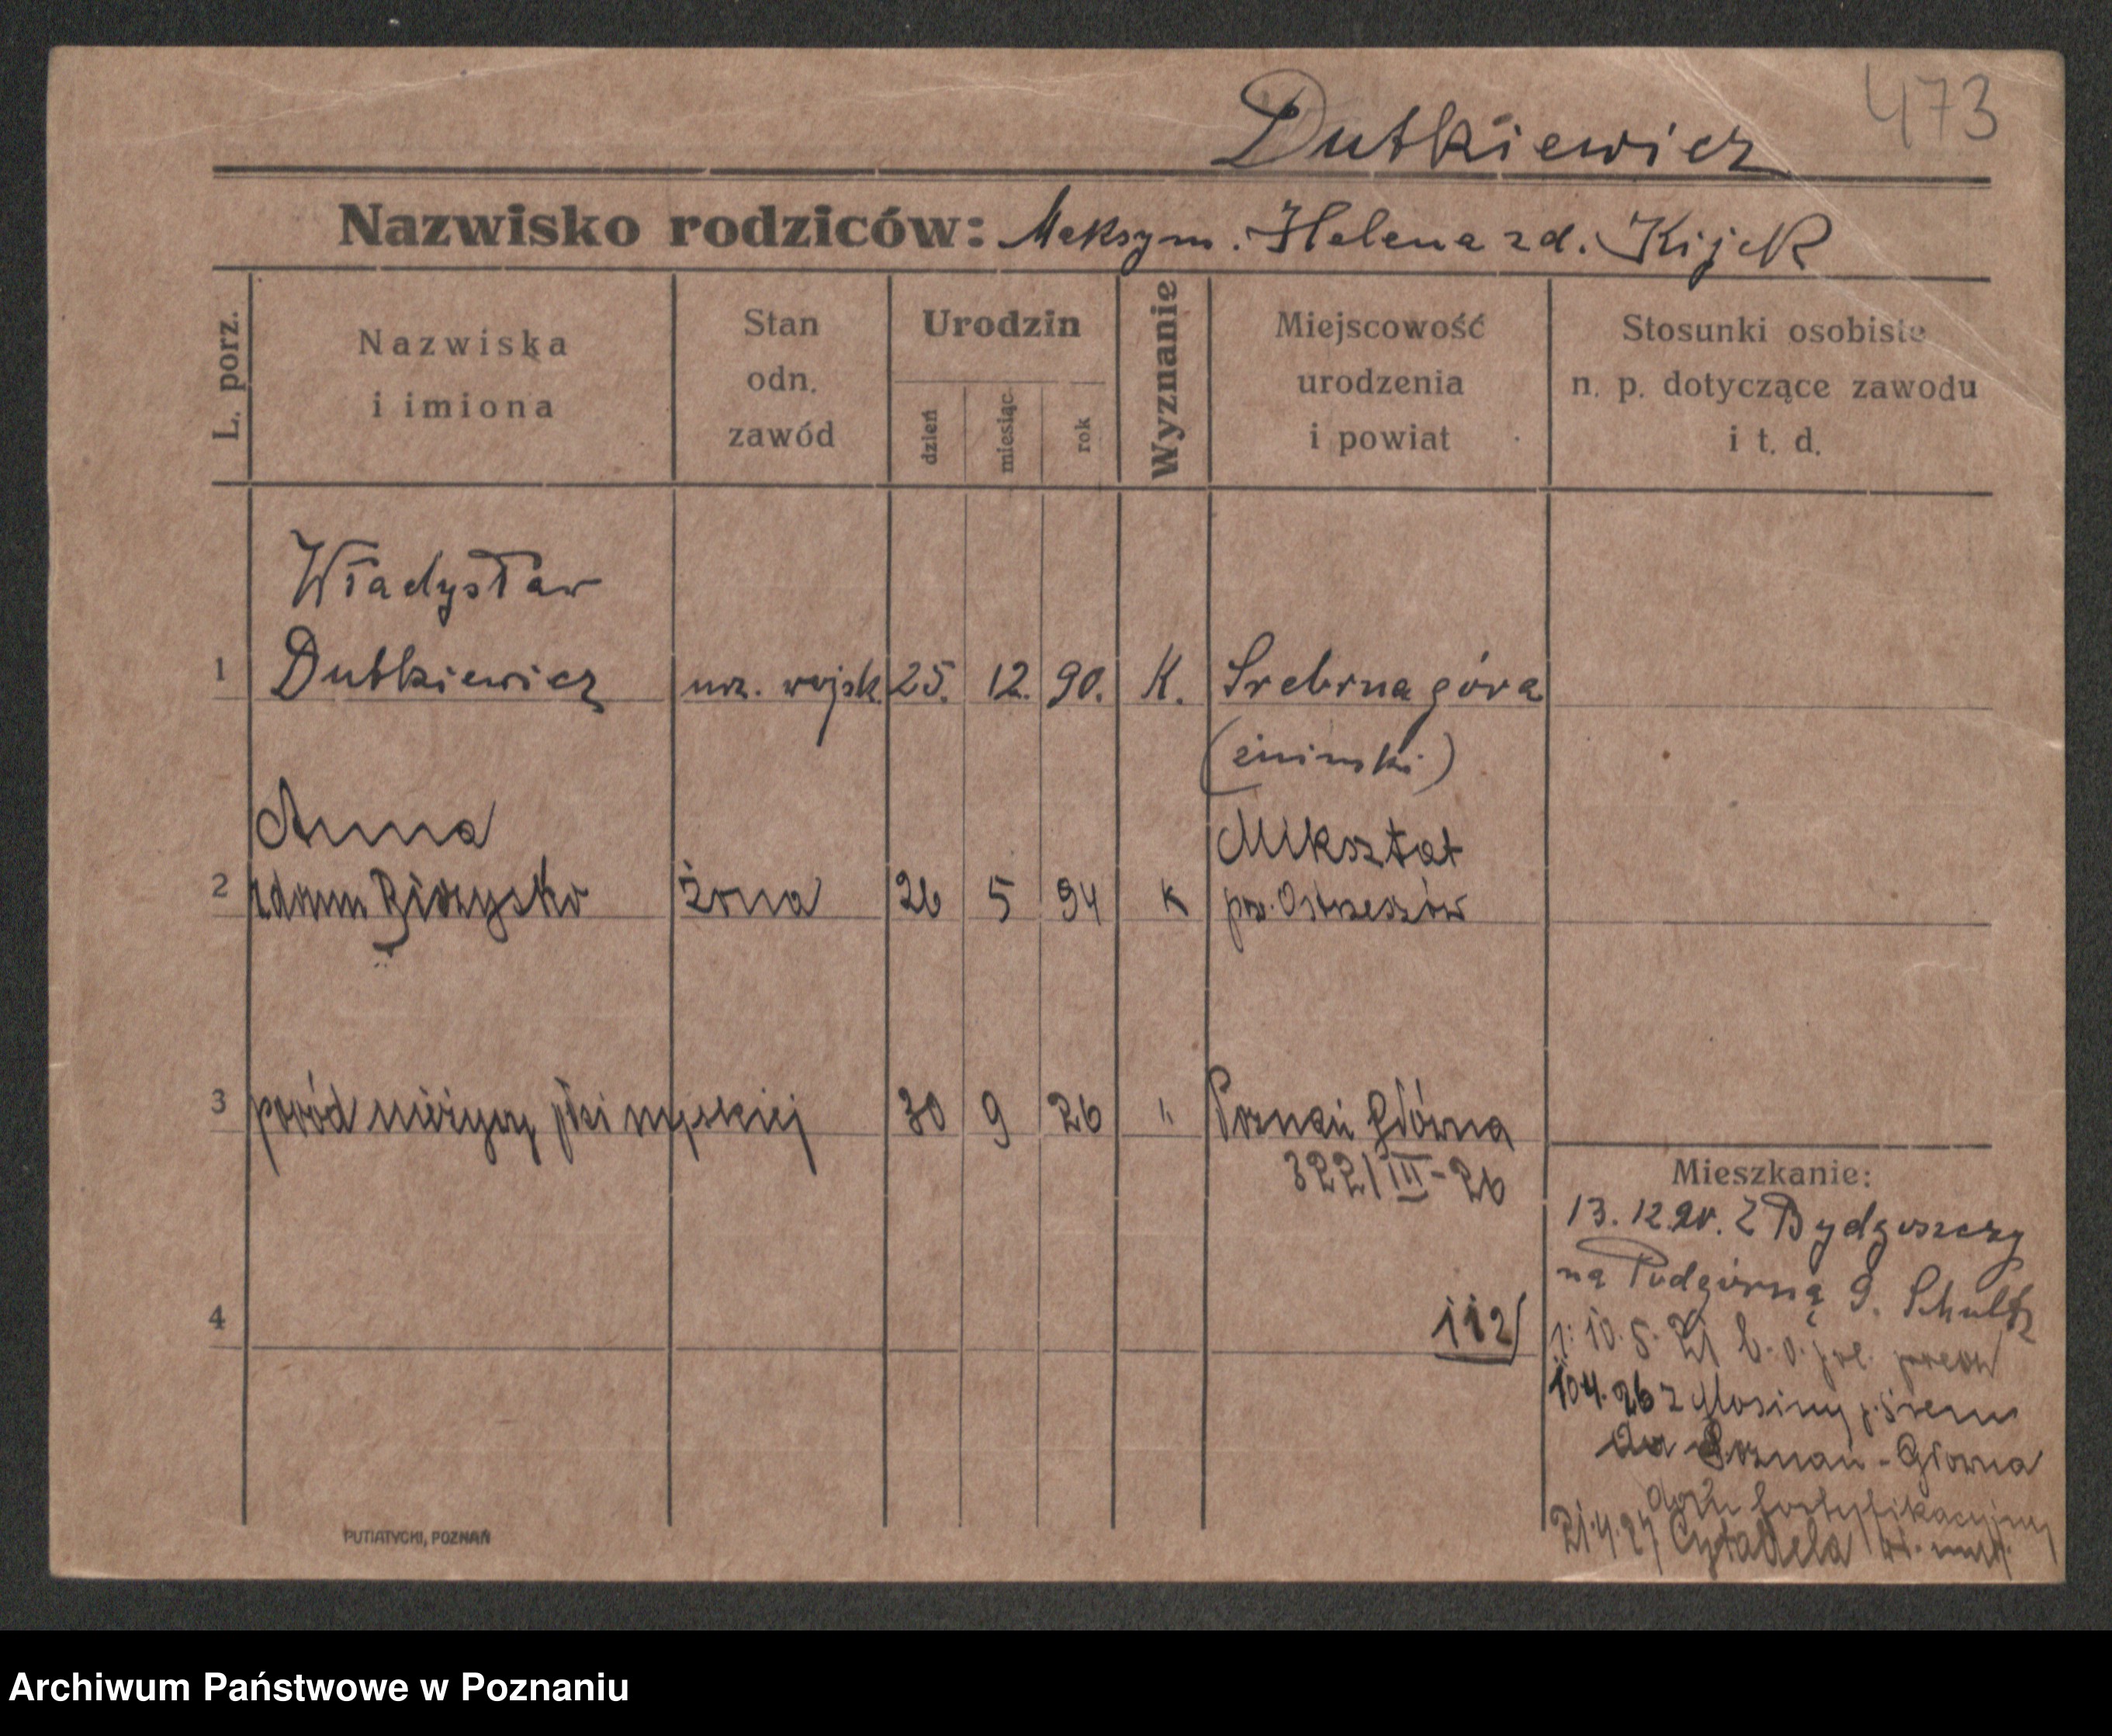 473
Dutkiewicz
Nazwisko rodziców: Maksym. Helena zd. Kijek
L. porz.
Nazwiska
i imiona
Stan
odn.
zawód
Urodzin
dzień
miesiąc
rok
Wyznanie
Miejscowość
urodzenia
i powiat
Stosunki osobiste
n. p. dotyczące zawodu
i t. d.
Władysław
1 Dutkiewicz urz. wojsk. 25. 12. 90. K. Srebrna góra
(żniński)
Anna Mikstat
2 żona 26 5 94 K pow. Ostrzeszów
3 poród nieżywy płci męskiej 30 9 26 " Poznań Główna
322/III-26
Mieszkanie:
13. 12. 20. z Bydgoszczy
na Podgórną 9. Schultz
4 112
10. 5. 21
10.4. 26 z Mosiny p. Śrem
do Poznań-Główna
fortyfikacyjny
21.4.27 Cytadela
PUTIATYCKI, POZNAŃ
Archiwum Państwowe w Poznaniu